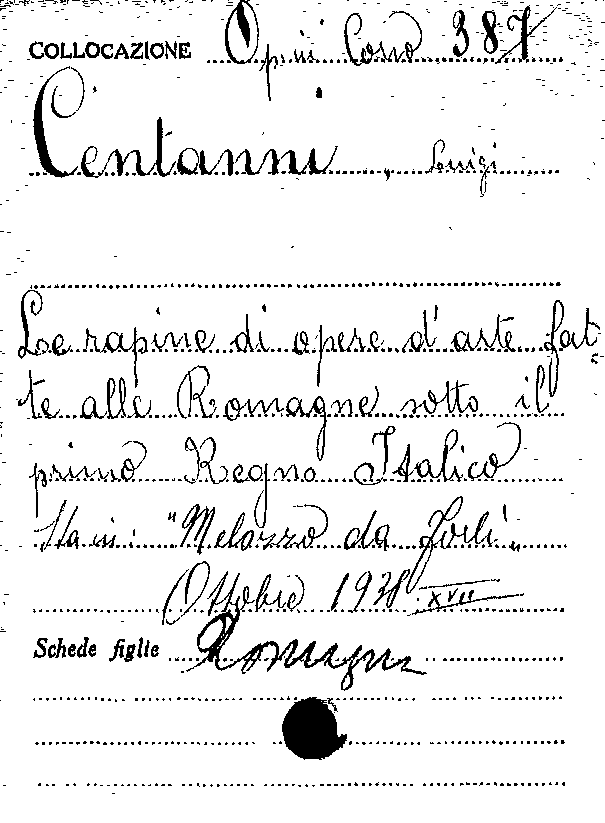 COLLOCAZIONE Op. in Corso 387
Centanni, Luigi
Le rapine di opere d'arte fat-
te alle Romagne sotto il
primo Regno Italico
Sta in: "Melozzo da Forlì"
Ottobre 1938 XVII
Schede figlie Romagna